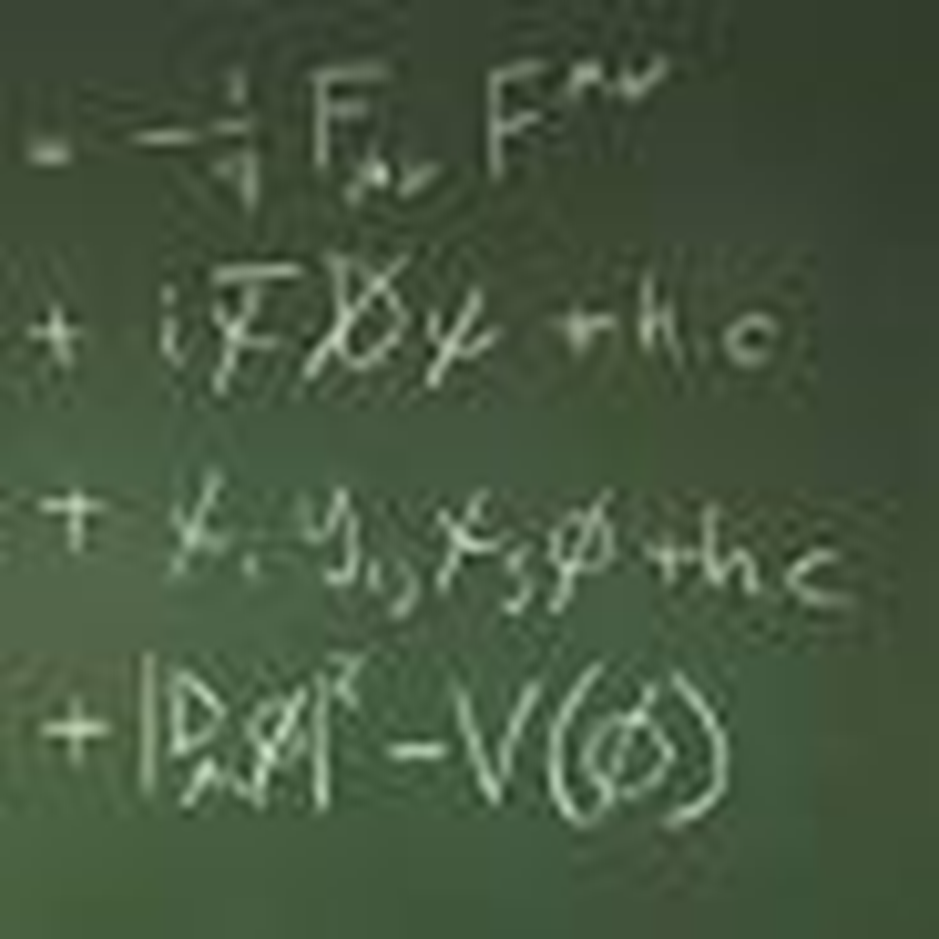 = -1/4 F_μν F^μν
+ i ψ̄ D̸ ψ + h.c
+ ψ_i y_ij ψ_j φ + h c
+ |D_μ φ|² - V(φ)